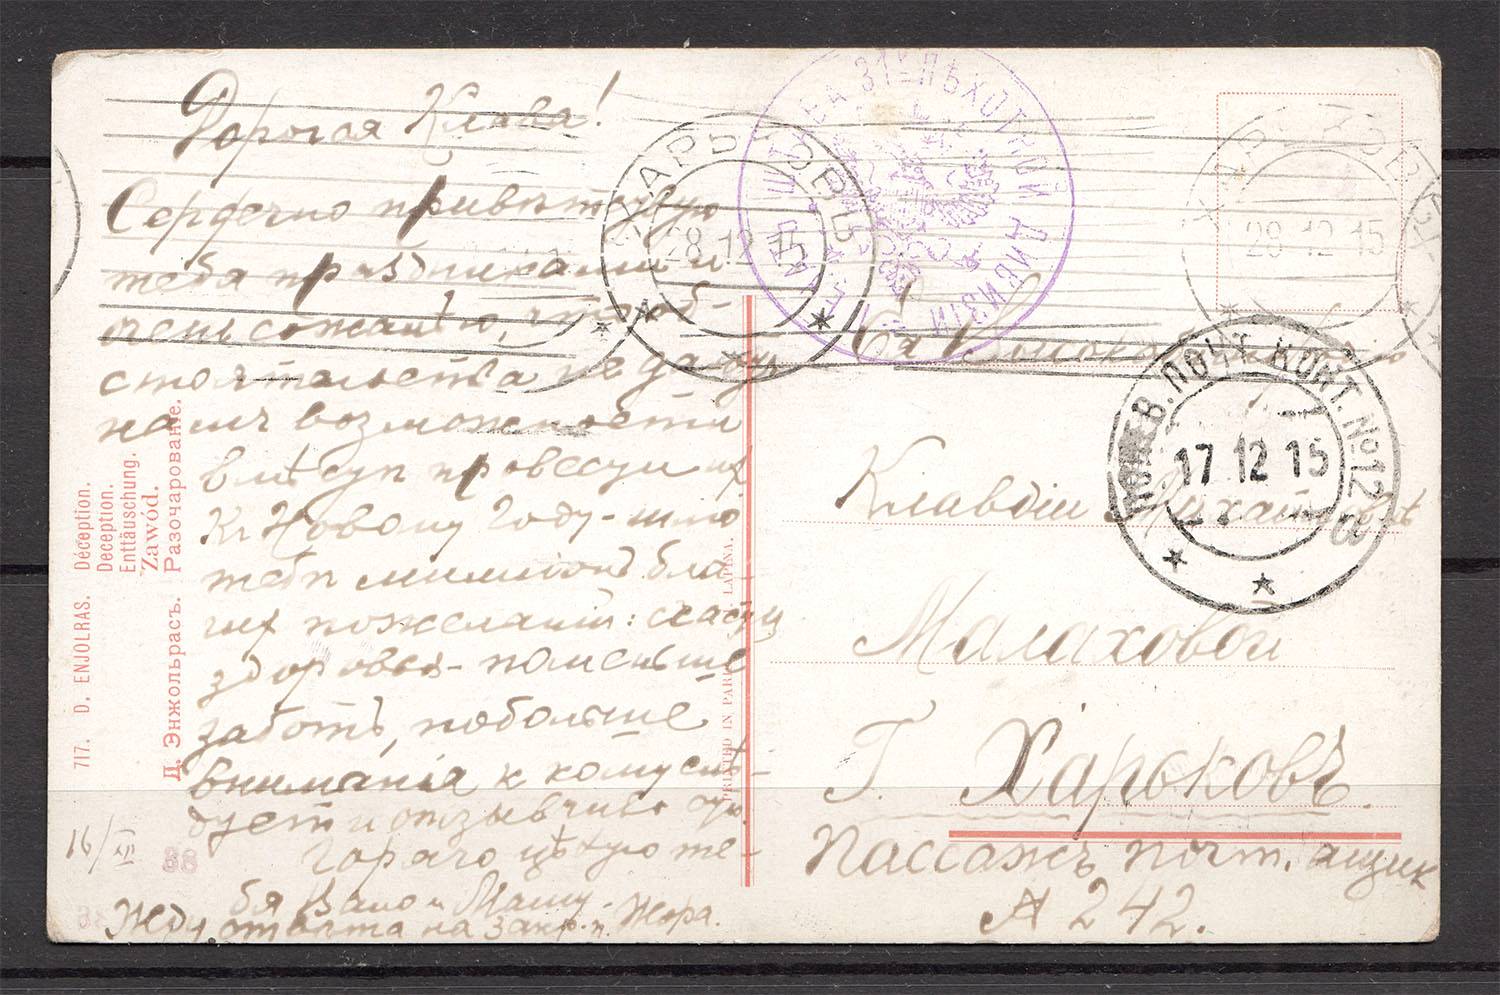 Дорогая Клава!
Сердечно привѣтствую
тебя праздниками и
очень сожалѣю, что об-
стоятельства не дадут
намъ возможности
вмѣстѣ провести их
Къ Новому Году - шлю
тебѣ милліонъ бла-
гих пожеланій: счастья
здоровья - поменьше
заботъ, побольше
вниманія к кому слѣ-
дует и отзывчиво
Горячо цѣлую те-
бя Валю и Машу
Жду отвѣта на закр. п. Жора.
16/XII
717. D. ENJOLRAS. Déception.
Deception.
Enttäuschung.
Zawód.
Д. Энжольрасъ. Разочарованіе.
PRINTED IN PARIS LAPINA.
88
ХАРЬКОВЪ
28 12 15
ШТАБА 31й ПѢХОТНОЙ ДИВИЗІИ
ХАРЬКОВЪ
28 12 15
ПОЧТ. КОНТ. №123
17 12 15
Клавдіи Михайловнѣ
Малаховой
Г. Харьковъ.
Пассажъ почт. ящик
№ 242.